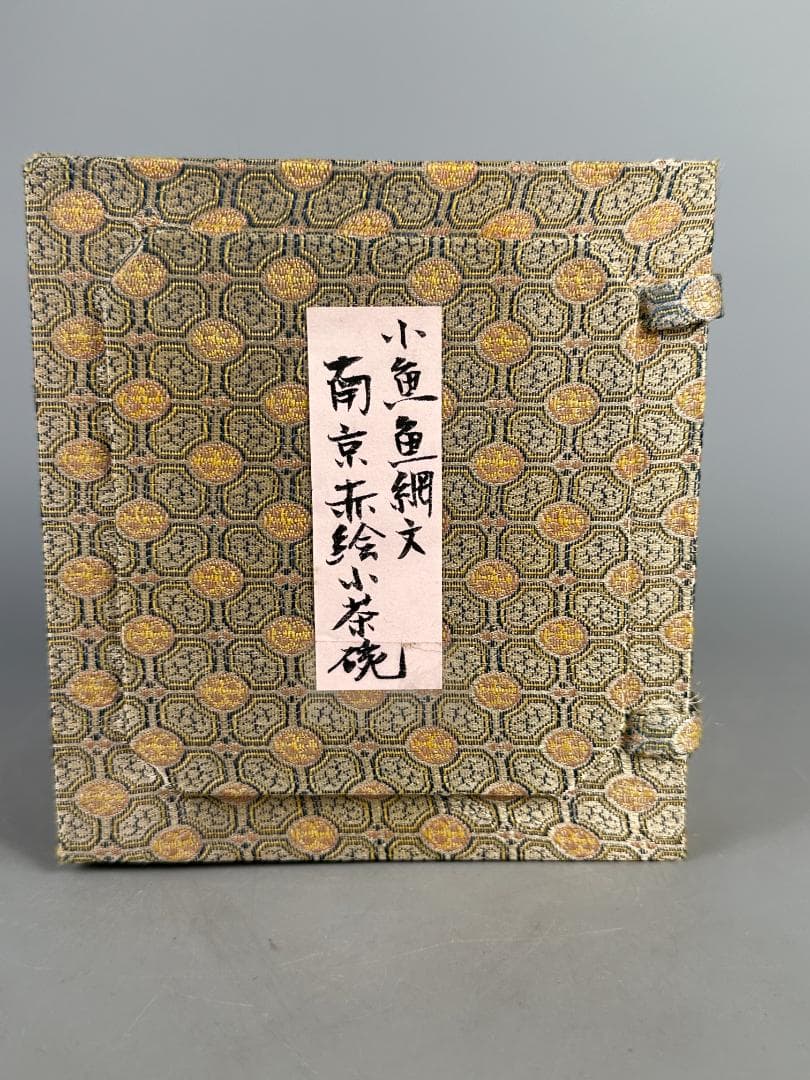 小魚魚網文
南京赤绘小茶碗